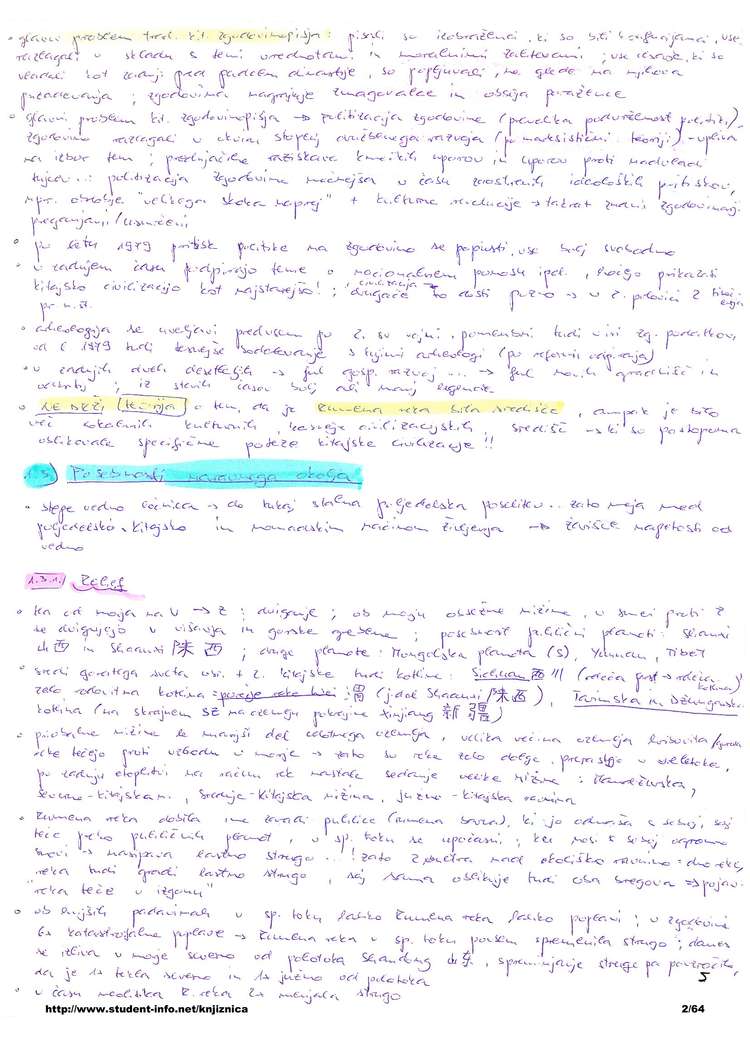 • glavni problem trad. kit. zgodovinopisja: pisali so izobraženci, ki so bili konfucijanci, vse
razlagali v skladu s temi vrednotami in moralnimi zahtevami; vse , ki so
vladali kot zadnji pred padcem dinastije, so popljuvali, ne glede na njihova
prizadevanja; zgodovina nagrajuje zmagovalce in obsoja poražence
• glavni problem kit. zgodovinopisja → politizacija zgodovine (panoška podvrženost politiki),
zgodovino razlagali v okviru stopenj družbenega razvoja (po marksistični teoriji) - vpliva
na izbor tem; prednjačile raziskave kmečkih uporov in uporov proti nadvladi
tujcev..: politizacija zgodovine močnejša v času zaostrenih ideoloških pritiskov,
npr. obdobje "velikega skoka naprej" + kulturne revolucije → takrat znani zgodovinarji
preganjani/usmrčeni
• po letu 1979 pritisk politike na zgodovino se popusti, vse bolj svobodno
• v zadnjem času podpirajo teme o nacionalnem ponosu ipd., hočejo prikazati
kitajsko civilizacijo kot najstarejšo!; drugače civilizacija → to dosti pozno → v 2. polovici 2.
pr. n. št.
• arheologija se uveljavi predvsem po 2. sv. vojni. pomembni tudi viri zg. podatkov,
od l. 1979 tudi tesnejše sodelovanje s tujimi arheologi (po reformi odpiranja)
• v zadnjih dveh desetletjih → ful gosp. razvoj ... → ful novih gradbišč in
; iz starih časov bolj ali manj legende.
• NE DRŽI teorija o tem, da je Rumena reka bila središče, ampak je bilo
več lokalnih kulturnih, kasneje civilizacijskih, središč → ki so postopoma
oblikovale specifične poteze kitajske civilizacije!!
1.3. Posebnosti naravnega okolja
• stepe vedno ločnica → do tukaj stalna poljedelska poselitev... zato meja med
poljedelsko kitajsko in nomadskim načinom življenja → žarišče napetosti od
vedno
1.3.1. Relief
• tla od morja na V → Z: dviganje; ob morju obsežne nižine, v smeri proti Z
se dvigujejo v višavja in gorske grebene; posebnost puhlični planoti: Shanxi
山西 in Shaanxi 陕西; druge planote: Mongolska planota (S), Yunnan, Tibet
• sredi goratega sveta osr. + Z. kitajske tudi kotline: Sichuan 四川 (rdeča prst → rdeča kotlina)
zelo rodovitna kotlina = porečje reke Wei 渭 (j. del Shaanxi 陕西), Tarimska in Džungarska
kotlina (na skrajnem SZ na ozemlju pokrajine Xinjiang 新疆)
• priobalne nižine le manjši del celotnega ozemlja, velika večina ozemlja hribovita/gorata
reke tečejo proti vzhodu v morje → zato so reke zelo dolge, v veletoke,
po zadnji otoplitvi na račun rek nastale sedanje velike nižine: Mandžurska,
Severno-kitajska n., Srednje-kitajska nižina, južno-kitajska ravnina
• Rumena reka dobila ime zaradi puhlice (rumena barva), ki jo odnaša s seboj, saj
teče preko puhličnih planot, v sp. toku se upočasni; ker nosi s seboj ogromno
snovi → nasipava lastno strugo ...! zato 2 metra nad okoliško ravnino = dno reke,
reka tudi gradi lastno strugo, saj sama oblikuje tudi oba bregova → pojav:
"reka teče v izgonu"
• ob hujših padavinah v sp. toku lahko Rumena reka lahko poplavi; v zgodovini
6x katastrofalne poplave → Rumena reka v sp. toku povsem spremenila strugo; danes
se izliva v morje severno od polotoka Shandong 山东, spreminjanje struge pa povzročilo,
da je 1x tekla severno in 1x južno od polotoka
• v času neolitika R. reka 2x menjala strugo
5
http://www.student-info.net/knjiznica
2/64